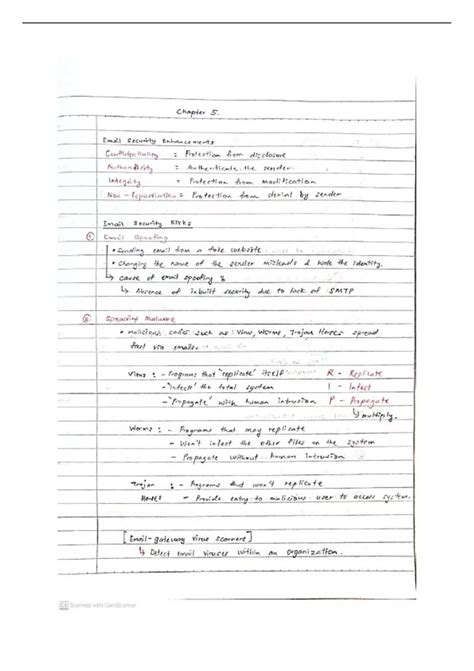 Chapter 5.
Email Security Enhancements
Confidentiality = Protection from disclosure
Authenticity = Authenticate the sender
Integrity = Protection from modification
Non-Repudiation = Protection from denial by sender
Email Security Risks
① Email Spoofing
• Sending email from a fake website
• Changing the name of the sender misleads & hide the identity.
↳ cause of email spoofing
↳ Absence of inbuilt security due to lack of SMTP
② Spreading Malware
• malicious codes such as Virus, Worms, Trojan Horses spread
fast via emails.
Virus : - Programs that "replicate" itself R - Replicate
- "infects" the total system I - Infect
- "Propagate" with human intrusion P - Propagate
↳ multiply.
Worms : - Programs that may replicate
- Won't infect the other files on the system
- Propagate without human intrusion
Trojan : - Programs that won't replicate
Horses - Provide entry to malicious user to access system.
[Email-gateway virus scanners]
↳ Detect email viruses within an organization.
CS Scanned with CamScanner